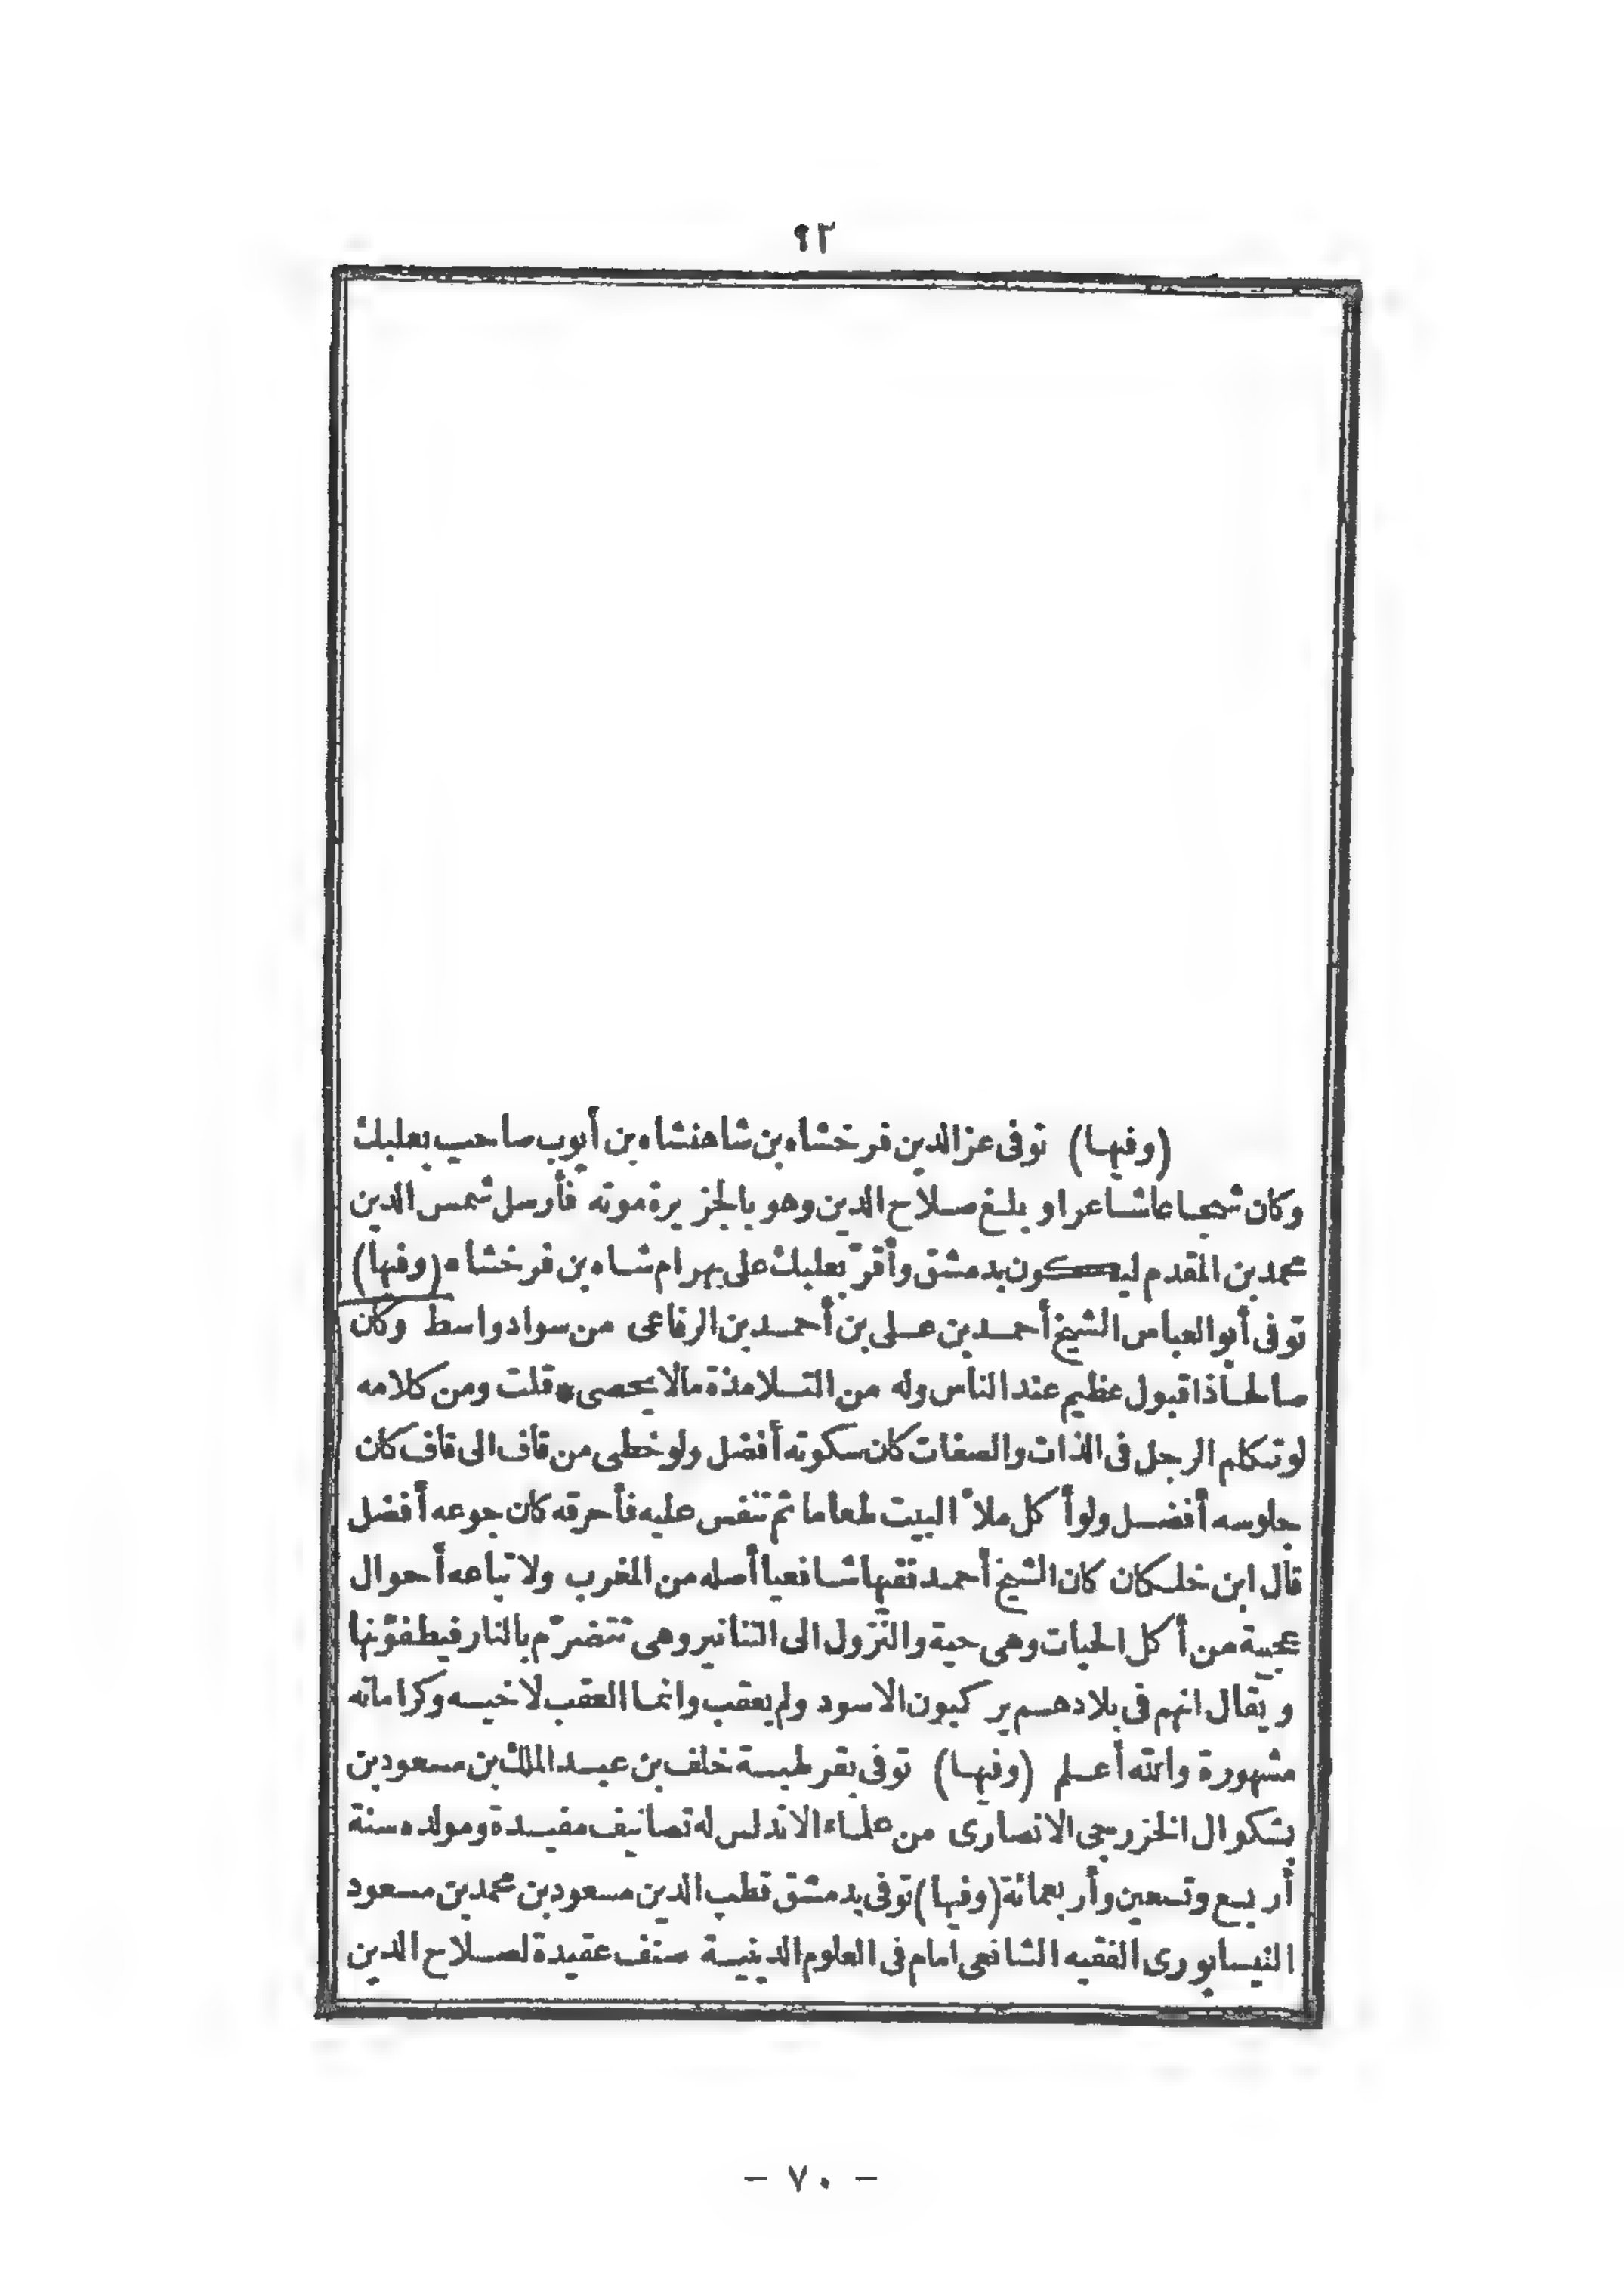 ٩٢
(وفيها) توفى عز الدين فرخشاه بن شاهنشاه بن أيوب صاحب بعلبك
وكان شجاعا شاعرا و بلغ صلاح الدين وهو بالجزيرة موته فأرسل شمس الدين
محمد بن المقدم ليكون بدمشق وأقرّ بعلبك على بهرام شاه بن فرخشاه (وفيها)
توفى أبو العباس الشيخ أحمد بن على بن أحمد بن الرفاعى من سواد واسط وكان
صالحا ذا قبول عظيم عند الناس وله من التلامذة مالا يحصى * قلت ومن كلامه
لو تكلم الرجل فى الذات والصفات كان سكوته أفضل ولو خطى من قاف الى قاف كان
جلوسه أفضل ولو أكل ملأ البيت طعاما ثم تنفس عليه فأحرقه كان جوعه أفضل
قال ابن خلكان كان الشيخ أحمد فقيها شافعيا أصله من المغرب ولا تباعه أحوال
عجيبة من أكل الحيات وهى حية والنزول الى التنانير وهى تتضرّم بالنار فيطفؤنها
و يقال انهم فى بلادهم يركبون الاسود ولم يعقب وانما العقب لاخيه وكراماته
مشهورة والله أعلم (وفيها) توفى بقرطبة خلف بن عبد الملك بن مسعود بن
بشكوال الخزرجى الانصارى من علماء الاندلس له تصانيف مفيدة ومولده سنة
أربع وتسعين وأربعمائة (وفيها) توفى بدمشق قطب الدين مسعود بن محمد بن مسعود
النيسابورى الفقيه الشافعى امام فى العلوم الدينية صنف عقيدة لصلاح الدين
– ٧٠ –